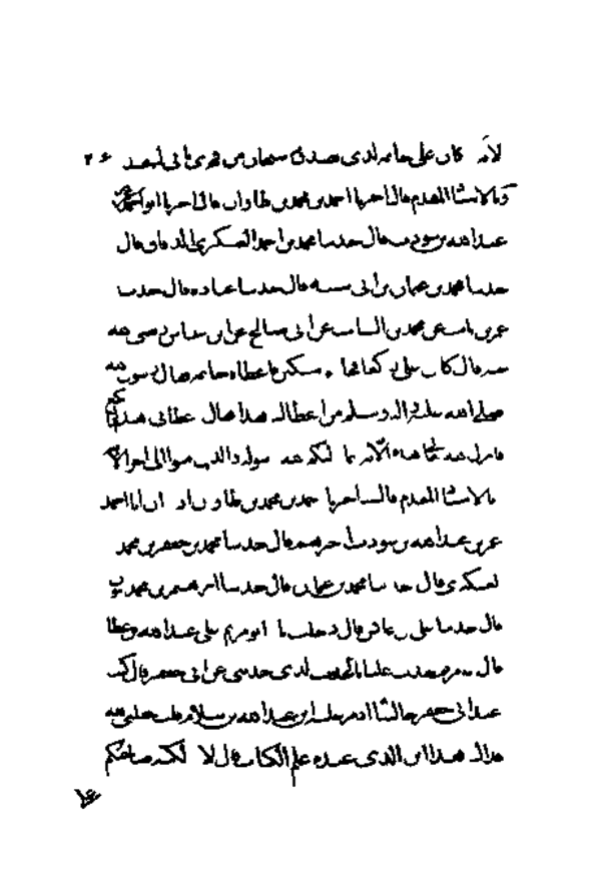 لانه كان على خاتمه الذى تصدق
وبالاسناد المقدم قال اخبرنا احمد بن محمد بن طاوان قال اخبرنا ابو احمد عمر بن
عبدالله بن شوذب قال حدثنا محمد بن احمد العسكرى الدقاق قال
حدثنا محمد بن عثمان بن ابى شيبه قال حدثنا عباده قال حدثنا
عمر بن ثابت عن محمد بن السائب عن ابى صالح عن ابن عباس رضى الله
عنه قال كان على راكعا فجاءه مسكين فاعطاه خاتمه فقال رسول الله
صلى الله عليه واله وسلم من اعطاك هذا فقال اعطانى هذا الراكع
فانزل الله هذه الآية انما وليكم الله ورسوله والذين امنوا الى اخر الآية
بالاسناد المقدم قال اخبرنا احمد بن محمد بن طاوان ان ابا احمد
عمر بن عبدالله بن شوذب اخبرهم قال حدثنا محمد بن جعفر بن محمد
العسكرى قال حدثنا محمد بن عثمان قال حدثنا ابراهيم بن محمد بن
قال حدثنا على بن عابس قال دخلت انا وابو مريم على عبدالله بن عطا
قال ابو مريم حدث عليا بالحديث الذى حدثنى عن ابى جعفر قال كنت
عند ابى جعفر جالسا اذ مر عليه ابن عبدالله بن سلام قلت جعلنى الله
فداك هذا ابن الذى عنده علم الكتاب قال لا لكنه صاحبكم
على